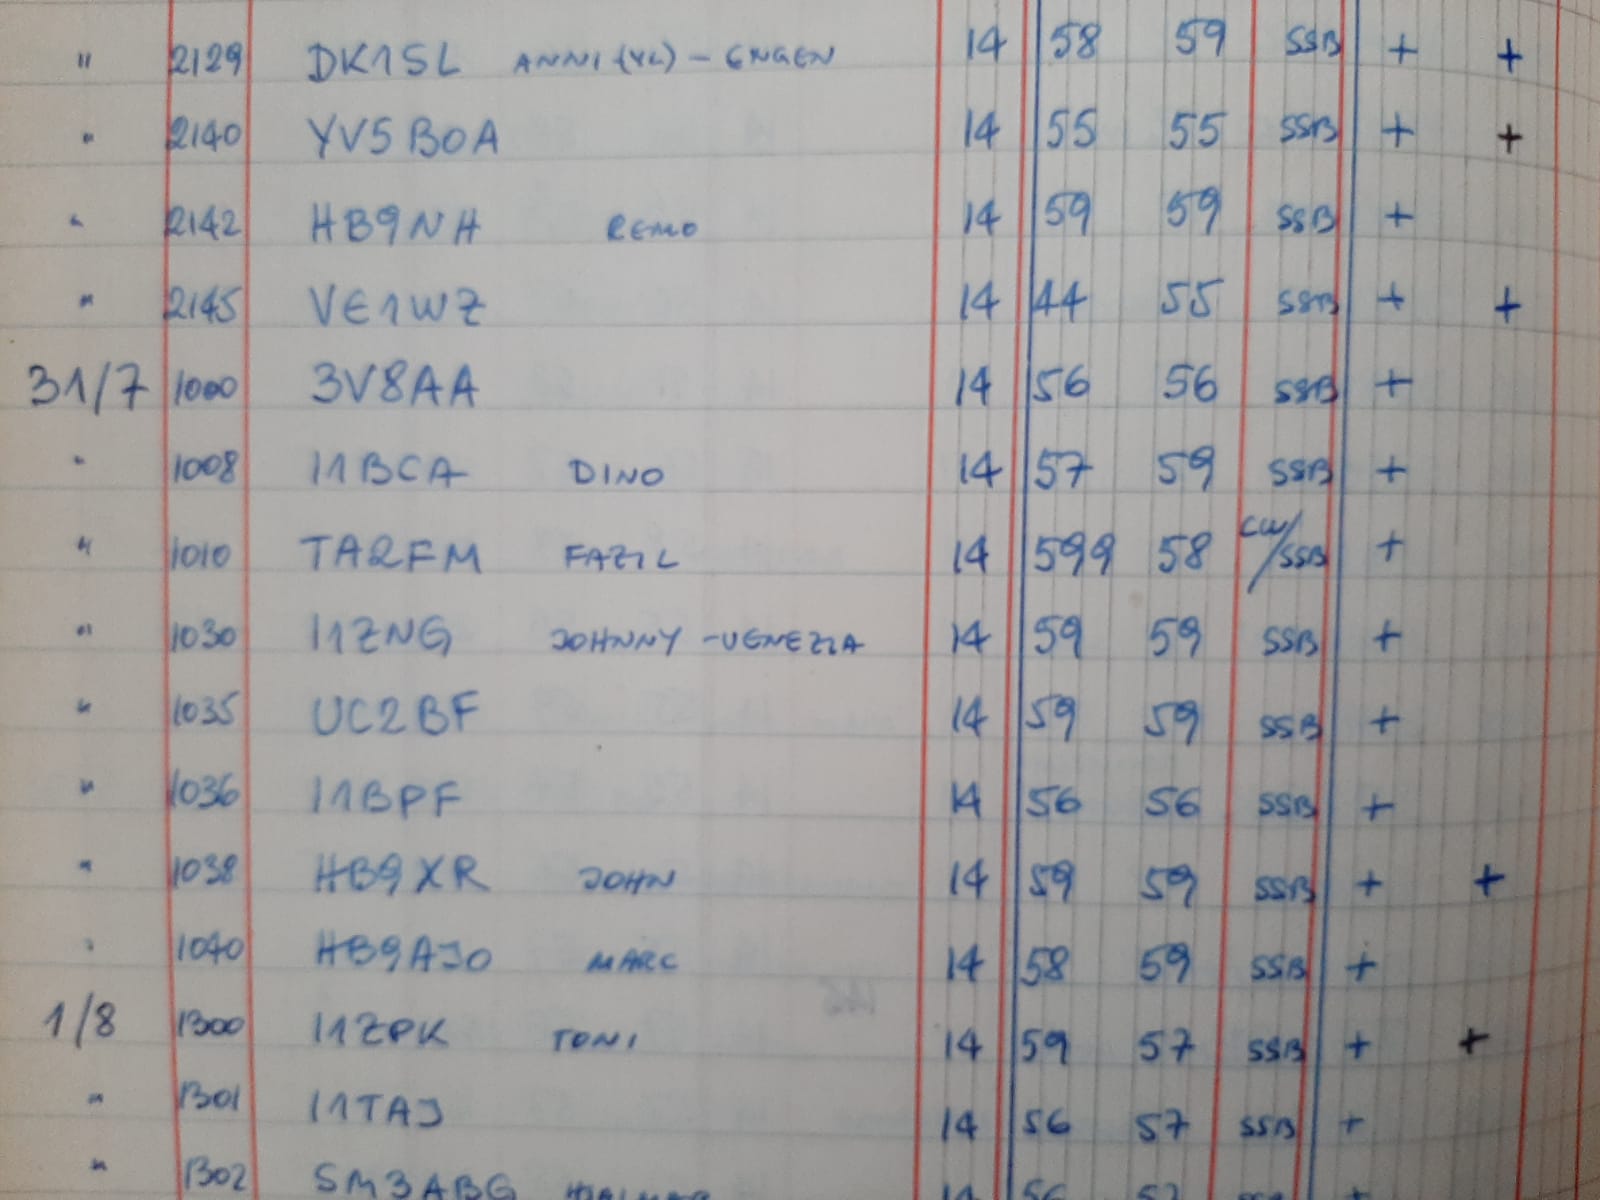 " 2129 DK1SL ANNI (YL) - ENGEN 14 58 59 SSB + +
" 2140 YV5BOA 14 55 55 SSB + +
" 2142 HB9NH REMO 14 59 59 SSB +
" 2145 VE1WZ 14 44 55 SSB + +
31/7 1000 3V8AA 14 56 56 SSB +
" 1008 I1BCA DINO 14 57 59 SSB +
" 1010 TA2FM FAZIL 14 599 58 CW/SSB +
" 1030 I1ZNG JOHNNY - VENEZIA 14 59 59 SSB +
" 1035 UC2BF 14 59 59 SSB +
" 1036 I1BPF 14 56 56 SSB +
" 1038 HB9XR JOHN 14 59 59 SSB + +
" 1040 HB9AJO MARC 14 58 59 SSB +
1/8 1300 I1ZPK TONI 14 59 57 SSB + +
" 1301 I1TAJ 14 56 57 SSB +
" 1302 SM3ABG 14 56 57 SSB +